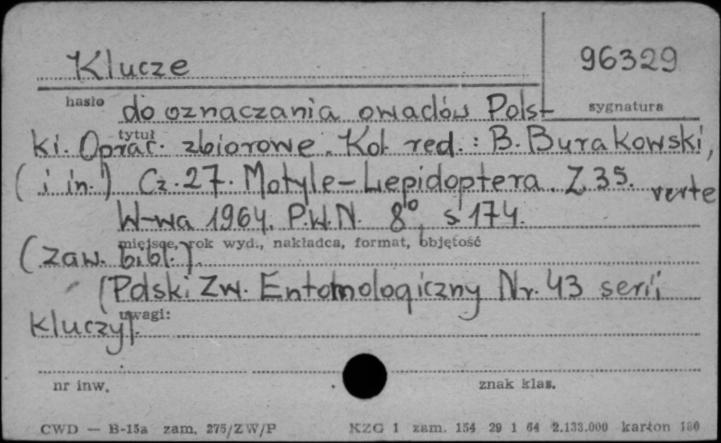 Klucze
96329
hasło
sygnatura
do oznaczania owadów Pols-
tytuł
ki. Oprac. zbiorowe. Kol. red.: B. Burakowski,
(i in.) Cz. 27. Motyle-Lepidoptera. Z. 35. verte
W-wa 1964. P.W.N. 8°, s 174.
miejsce, rok wyd., nakładca, format, objętość
(zaw. bibl.).
(Polski Zw. Entomologiczny Nr. 43 serii
uwagi:
kluczy).
nr inw.
znak klas.
CWD — B-15a zam. 275/ZW/P
KZG 1 zam. 154 29 1 64 2.133.000 karton 180